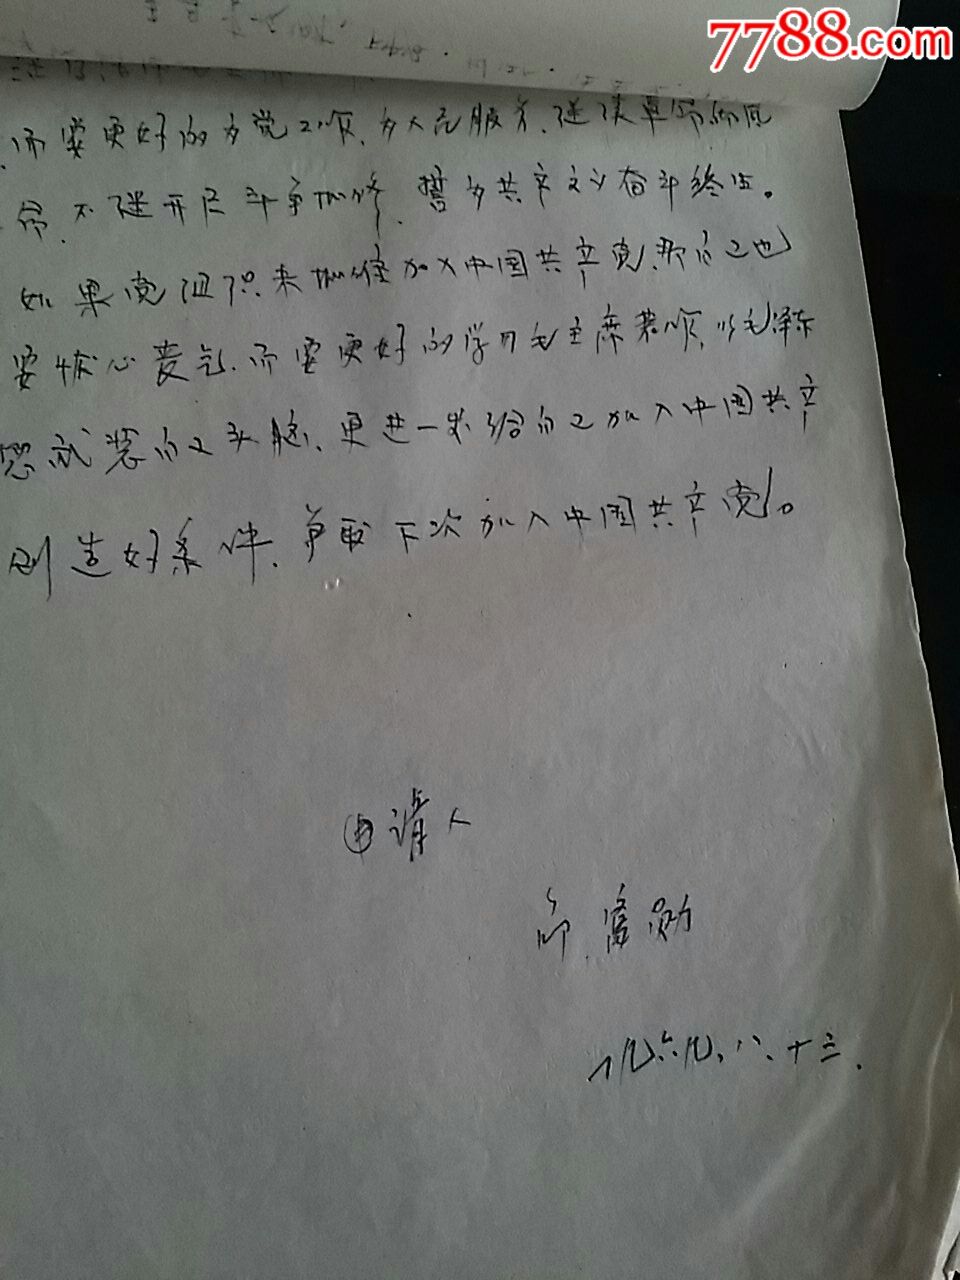 7788.com
而要更好的为党工作,为人民服务,继续革命
命,不 开展斗争 ,誓为共产主义奋斗终生。
如果党组织未批准加入中国共产党,那自己也
要 心 气,而要更好的学习毛主席著作,以毛泽东
想武装自己头脑,更进一步给自己加入中国共产
创造好条件,争取下次加入中国共产党。
申请人
富勋
一九六九、八、十三.